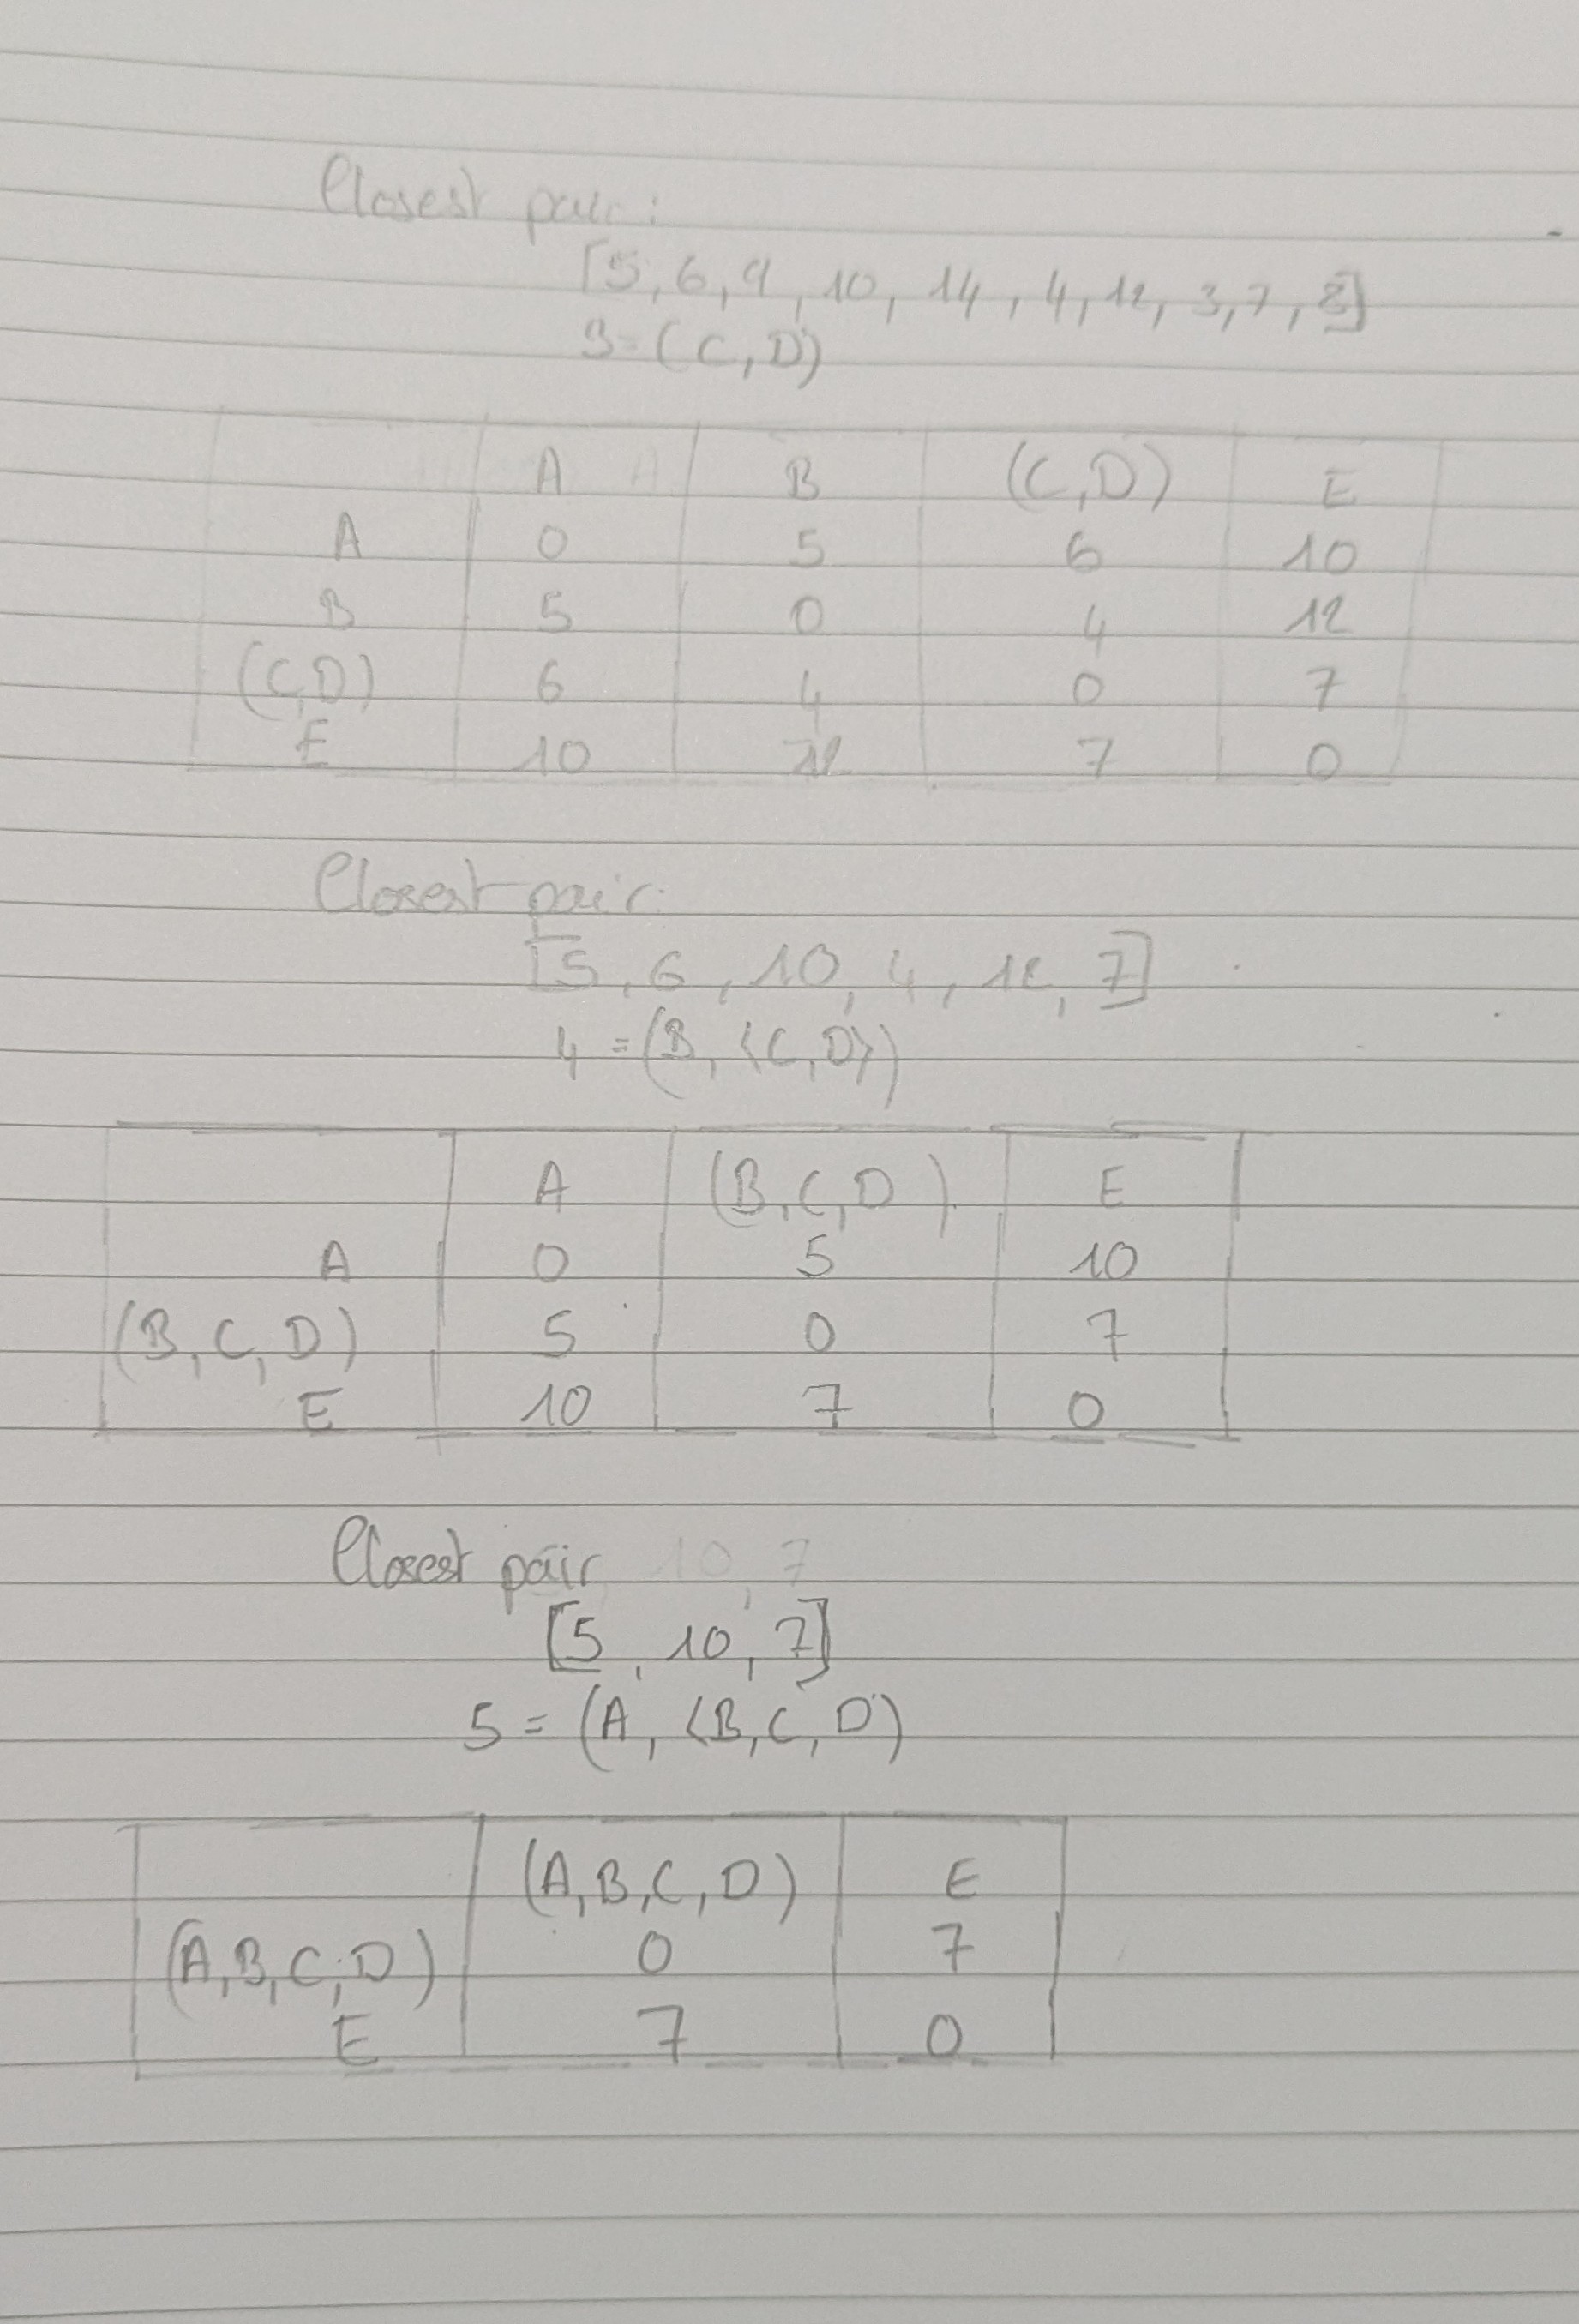 Closest pair:
[5, 6, 9, 10, 14, 4, 12, 3, 7, 8]
3 = (C, D)
A B (C,D) E
A 0 5 6 10
B 5 0 4 12
(C,D) 6 4 0 7
E 10 12 7 0
Closest pair:
[5, 6, 10, 4, 12, 7]
4 = (B, <C, D>)
A (B,C,D) E
A 0 5 10
(B,C,D) 5 0 7
E 10 7 0
Closest pair 10, 7
[5, 10, 7]
5 = (A, <B,C,D)
(A,B,C,D) E
(A,B,C,D) 0 7
E 7 0